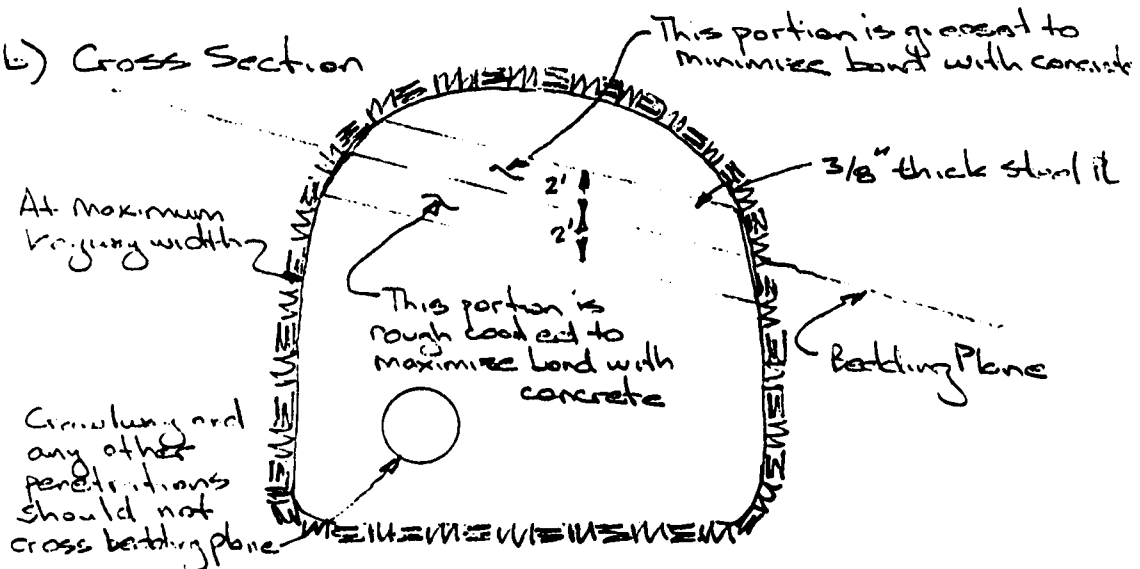 b) Cross Section
This portion is greased to
minimize bond with concrete
3/8" thick steel
2'
2'
At maximum
keyway width
This portion is
rough coated to
maximize bond with
concrete
Bedding Plane
and
any other
penetrations
should not
cross bedding plane